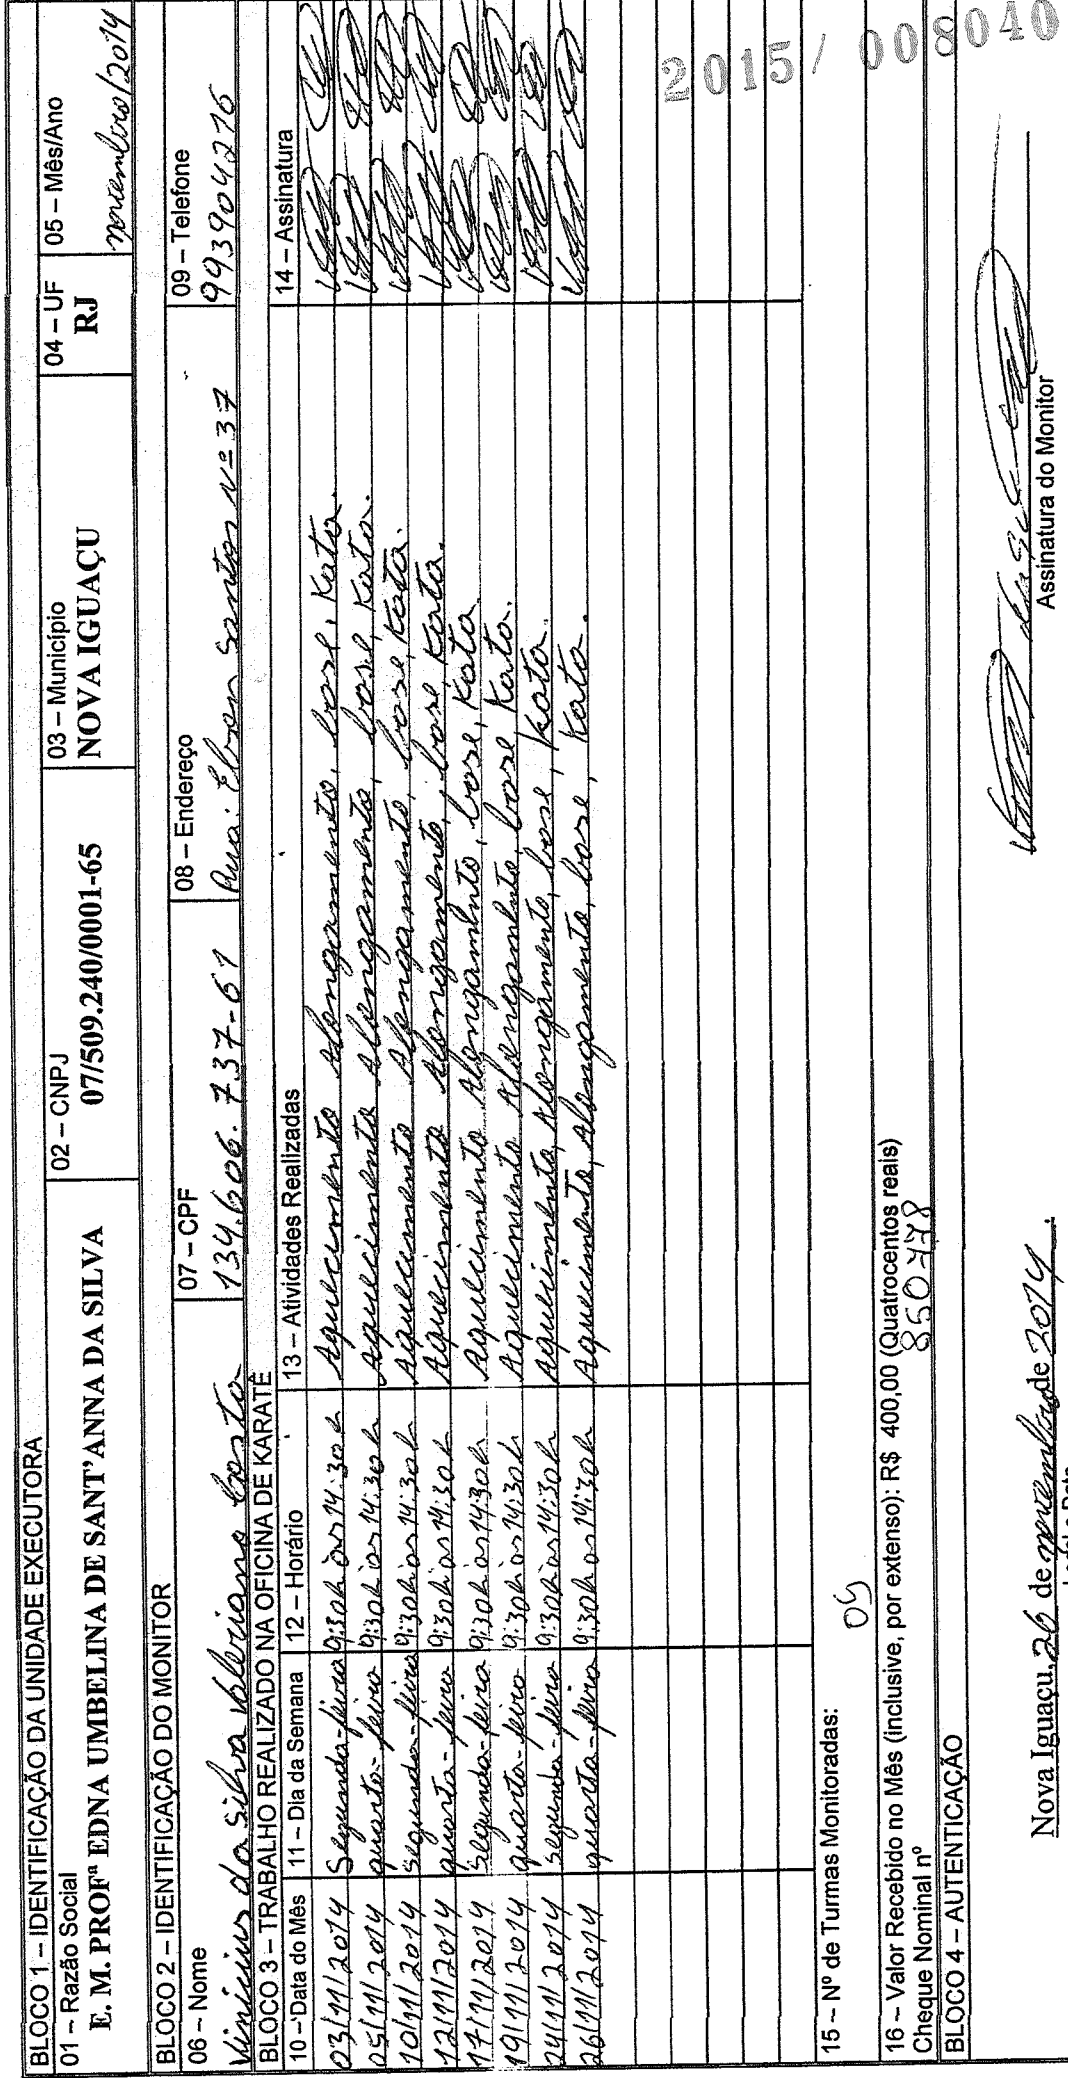 BLOCO 1 – IDENTIFICAÇÃO DA UNIDADE EXECUTORA
01 – Razão Social 02 – CNPJ 03 – Município 04 – UF 05 – Mês/Ano
E. M. PROFª EDNA UMBELINA DE SANT'ANNA DA SILVA 07/509.240/0001-65 NOVA IGUAÇU RJ novembro/2014
BLOCO 2 – IDENTIFICAÇÃO DO MONITOR
06 – Nome 07 – CPF 08 – Endereço 09 – Telefone
Vinicius da Silva Valeriano Costa 134.606.737-61 Rua: Santos nº 37 993904276
BLOCO 3 – TRABALHO REALIZADO NA OFICINA DE KARATÊ
10 – Data do Mês 11 – Dia da Semana 12 – Horário 13 – Atividades Realizadas 14 – Assinatura
03/11/2014 Segunda-feira 9:30h às 14:30h Aquecimento Alongamento, base, Kata.
05/11/2014 quarta-feira 9:30h às 14:30h Aquecimento Alongamento, base, Kata.
10/11/2014 segunda-feira 9:30h às 14:30h Aquecimento Alongamento, base, Kata.
12/11/2014 quarta-feira 9:30h às 14:30h Aquecimento Alongamento, base, Kata.
17/11/2014 Segunda-feira 9:30h às 14:30h Aquecimento Alongamento, base, Kata.
19/11/2014 quarta-feira 9:30h às 14:30h Aquecimento Alongamento, base Kata.
24/11/2014 segunda-feira 9:30h às 14:30h Aquecimento, Alongamento, base, Kata.
26/11/2014 quarta-feira 9:30h às 14:30h Aquecimento, Alongamento, base, Kata.
2015/ 008040
15 – Nº de Turmas Monitoradas: 05
16 – Valor Recebido no Mês (inclusive, por extenso): R$ 400,00 (Quatrocentos reais)
Cheque Nominal nº 850478
BLOCO 4 – AUTENTICAÇÃO
Nova Iguaçu, 26 de novembro de 2014.
Assinatura do Monitor